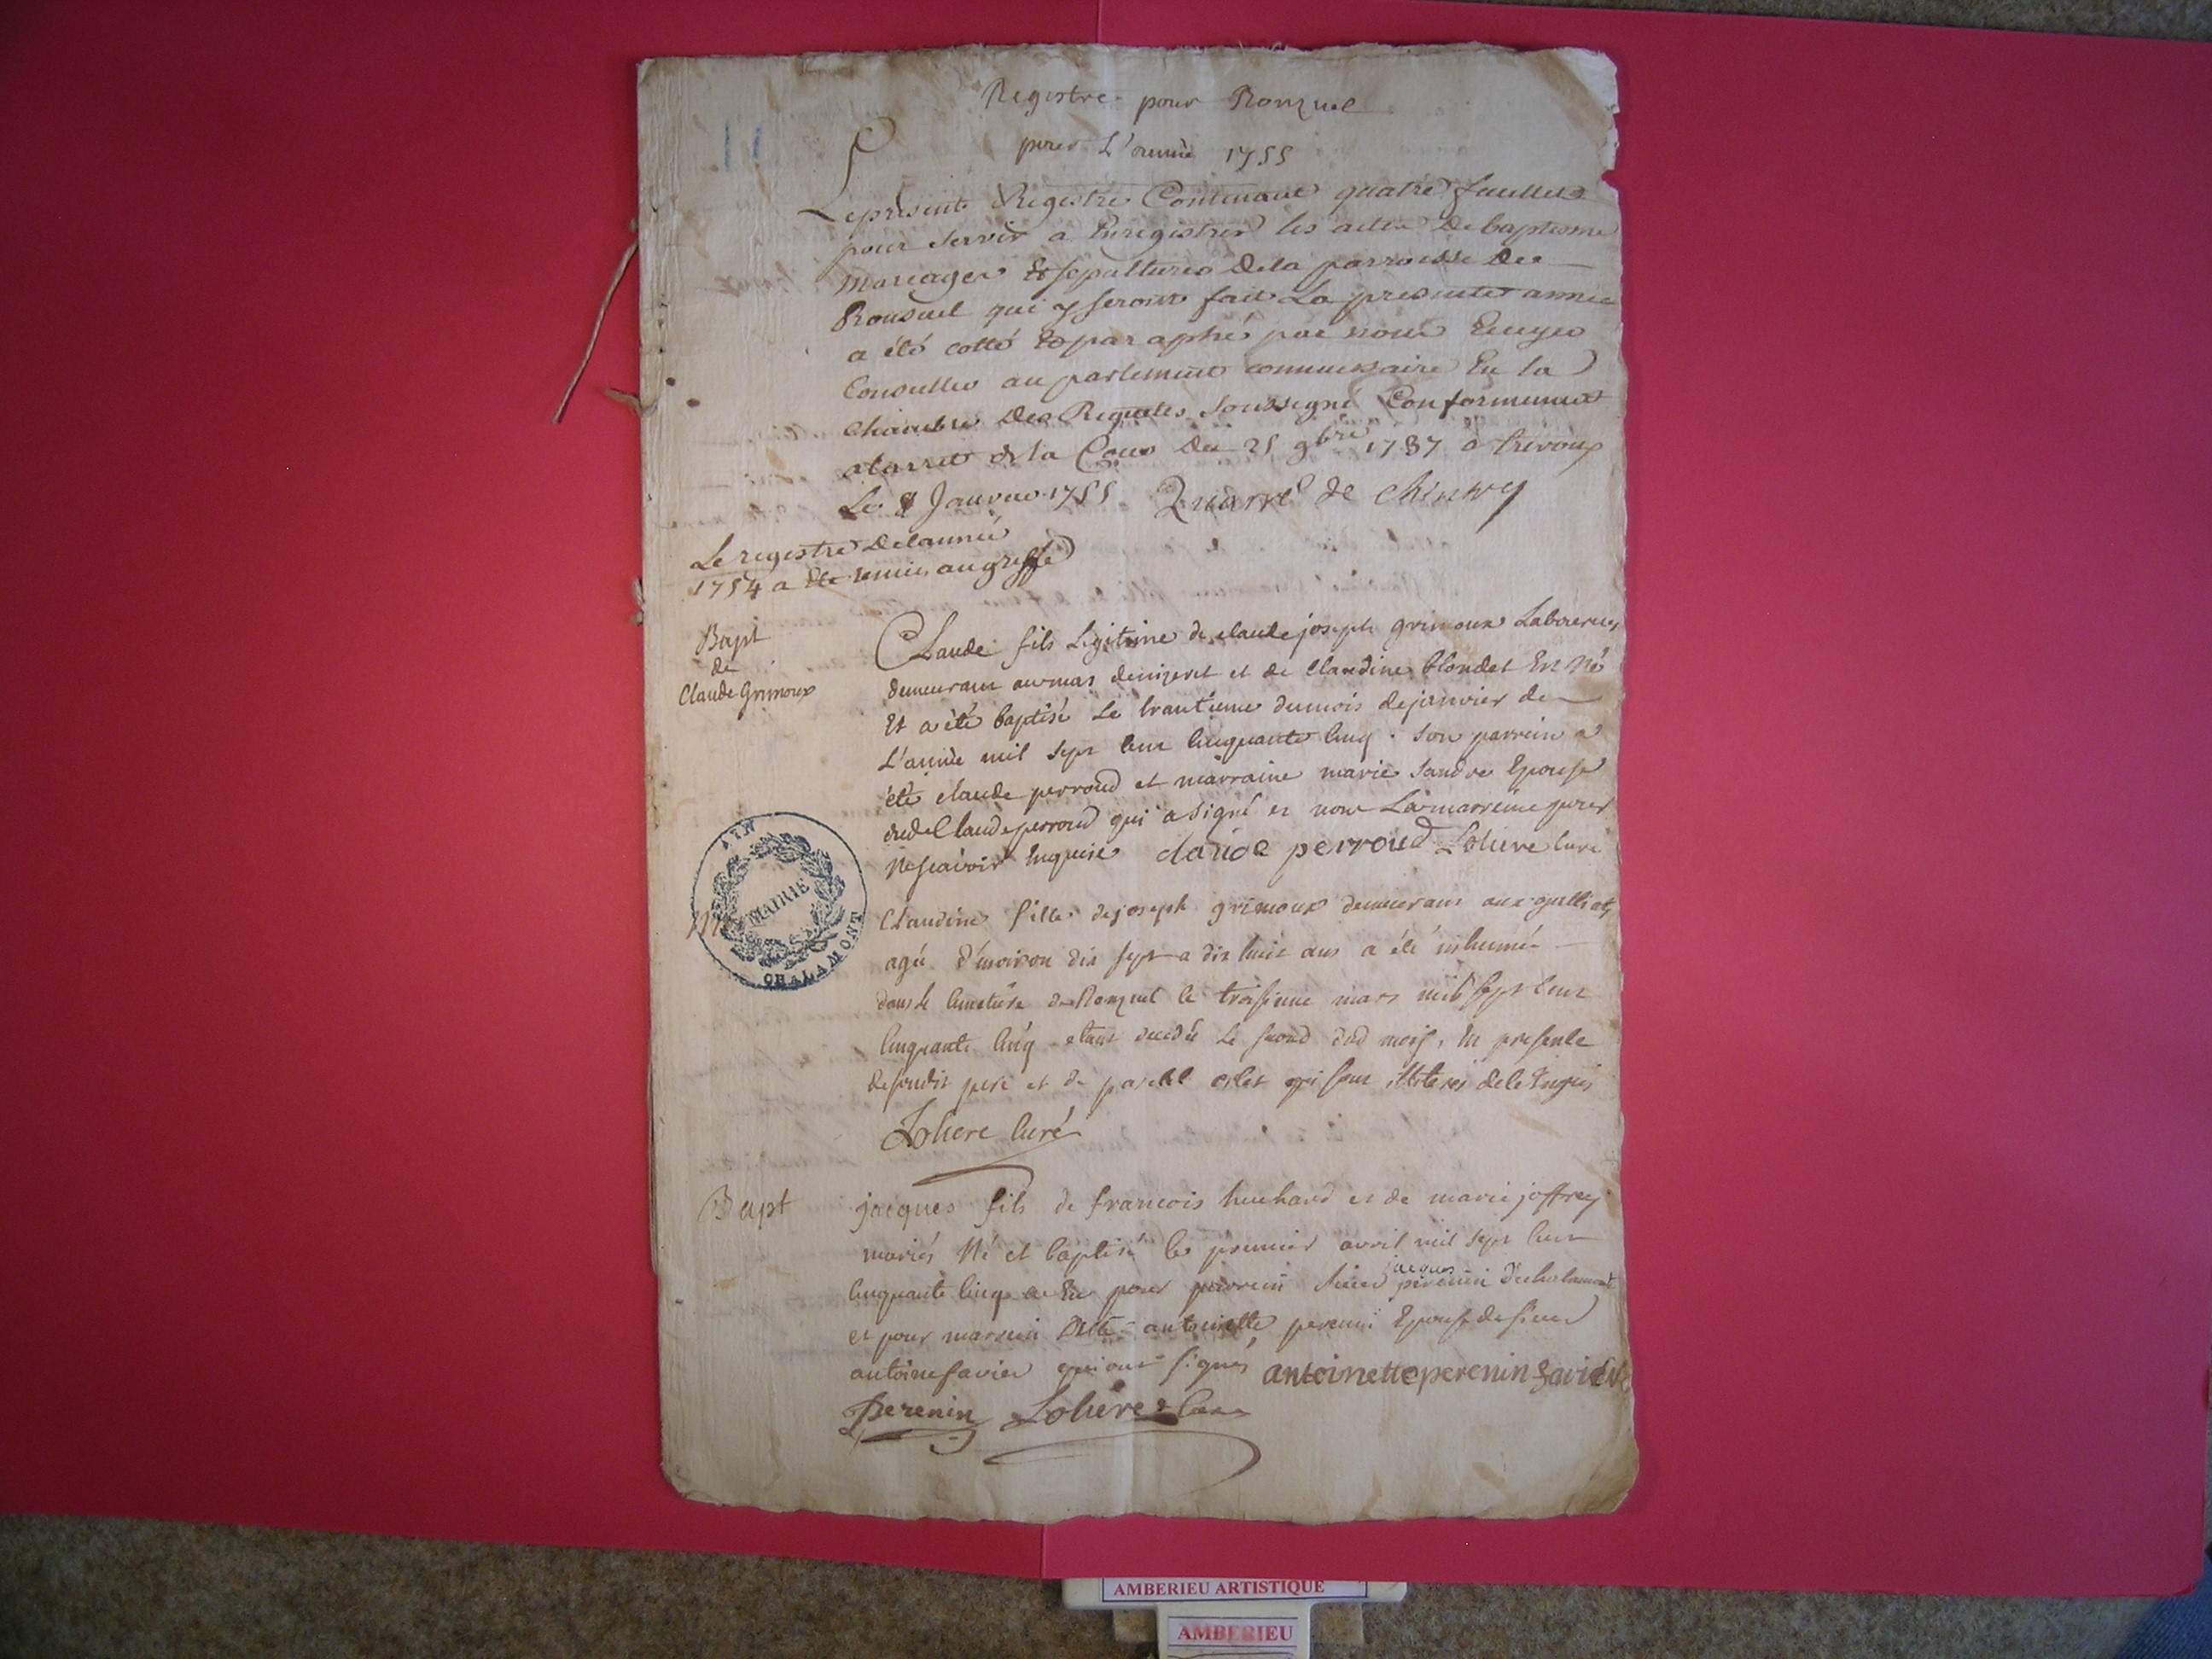 Registre pour Ronzuel
pour L'année 1755
Le present Registre Contenant quatre feuillets
pour servir a Enregistrer les actes De baptesme
mareages & sepultures Dela parroisse De
Ronsuel qui y seront fait La presente année
a été cotté & paraphé par nous Ecuyer
Conseiller au parlement commissaire En la
Chambre Des Requetes soussigné Conformement
a larret de la Cour Du 25 9bre 1737 a trevoux
Le 8 Janvier 1755 Quarré de Chintry
Le registre De lannée
1754 a été remis au greffe
Bapt
de
Claude Grimoux
Claude fils Legitime de claude joseph grimoux Laboureur
demeurant au mas denizeret et de Claudine blondet Est Né
Et a été baptisé Le trantieme du mois de janvier de
L'année mil sept cent cinquante cinq. son parrein a
été claude perroud et marraine marie sandre Epouse
dud Claude perroud qui a signé et non La marreine pour
Ne scavoir Enquise claude perroud Loliere curé
Claudine fille de joseph grimoux demeurant aux
agée d'environ dix sept a dix huit ans a été inhumée
dans le cimetiere de Ronzuel le troisieme mars mil sept cent
cinquante cinq etant decedée Le second dud mois, En presence
de sondit pere et de qui sont illiteres de ce Enquis
Loliere Curé
Bapt
jacques fils de francois huchard et de marie joffrey
mariés Né et baptisé le premier avril mil sept cent
cinquante cinq a Eu pour parrein sieur jacques perenin de chalamont
et pour marrein Dlle antoinette perenin Epouse de sieur
antoine favier qui ont signés antoinette perenin favier
Perenin Loliere Curé
AIN
MAIRIE
CHALAMONT
AMBERIEU ARTISTIQUE
AMBERIEU